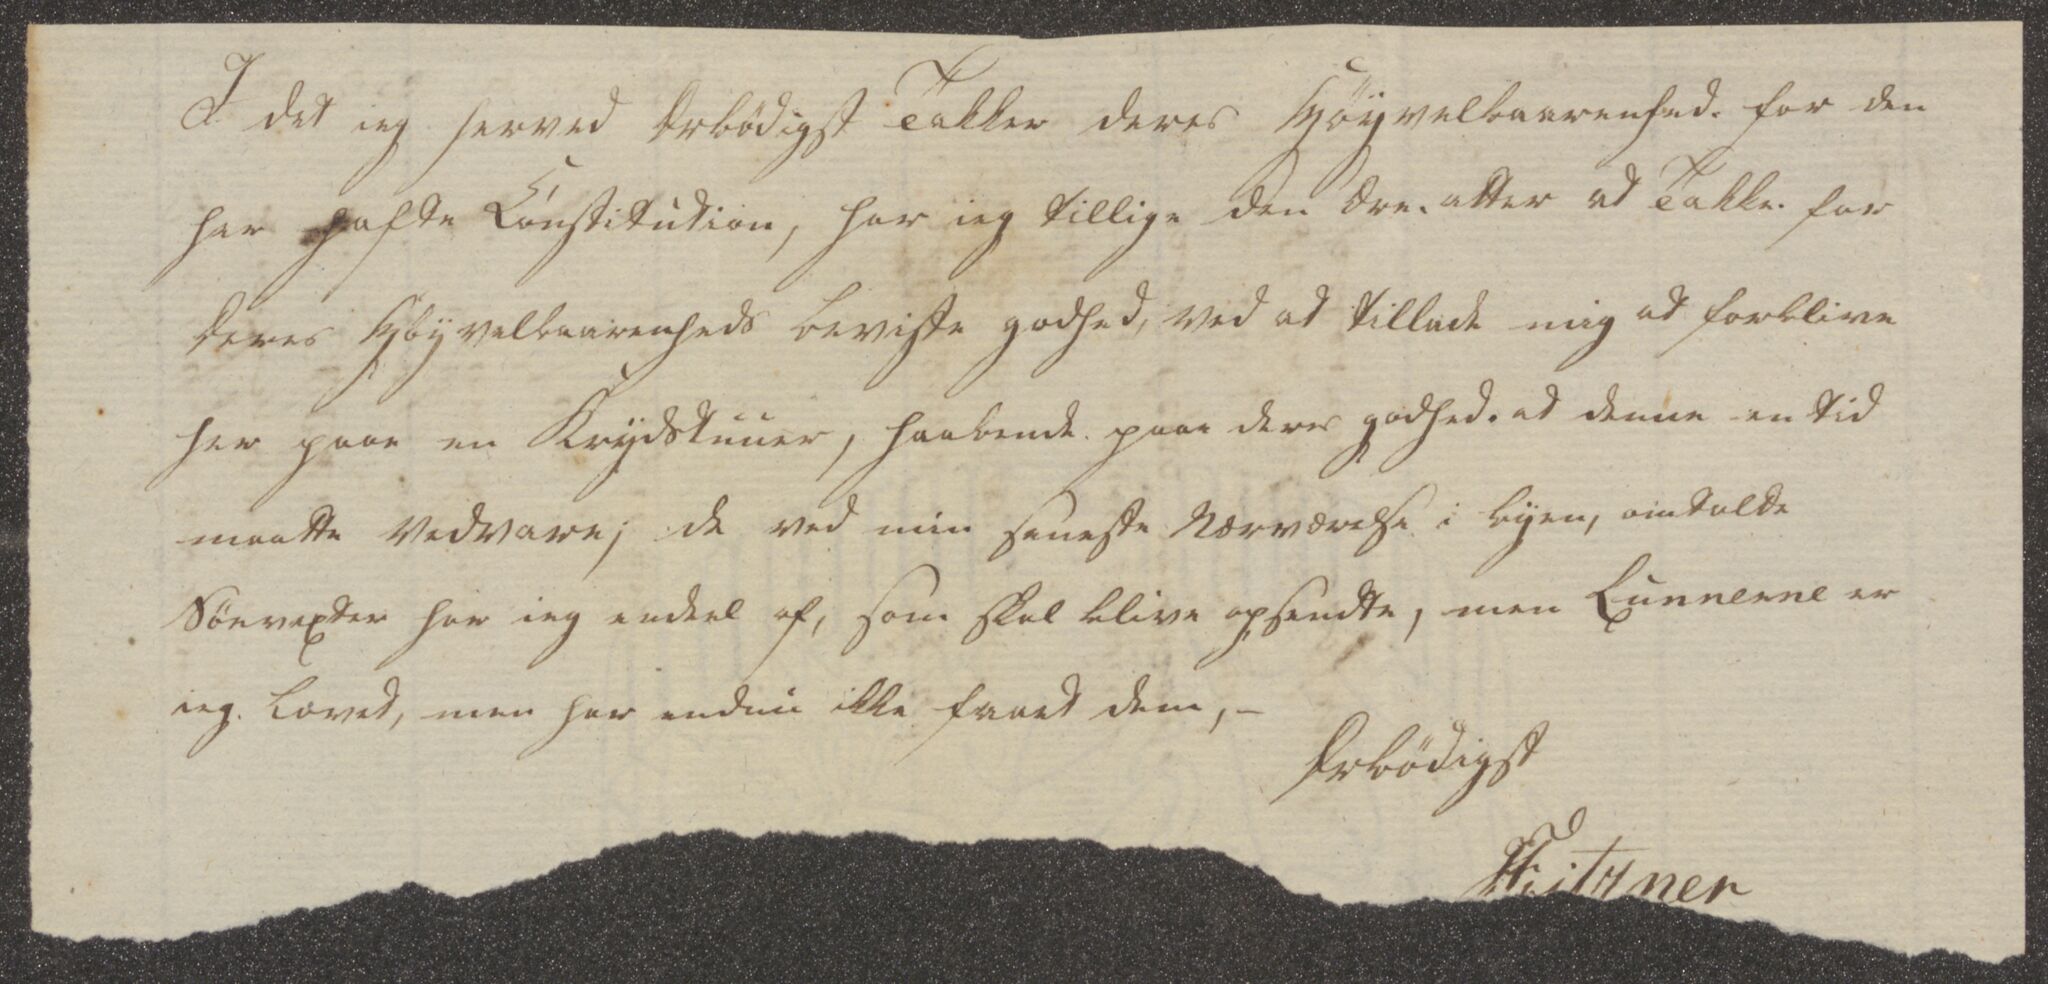 I det ieg herved Ærbödigst Takker deres Höÿvelbaarenhed. for den
her hafte Constitution, har ieg tillige den Ære. atter at Takke. for
Deres Höÿvelbaarenheds beviste godhed, ved at tillade mig at forblive
her paae en Krydstuuer, haabende. paae deres godhed. at denne en tid
maatte vedvare; de ved min seneste Nærværelse i byen, omtalte
Söevexter har ieg endeel af, som skal blive opsendte, men Lunnerne er
ieg. Lovet, men har endnu ikke faaet dem, –
Ærbödigst
Fitzner